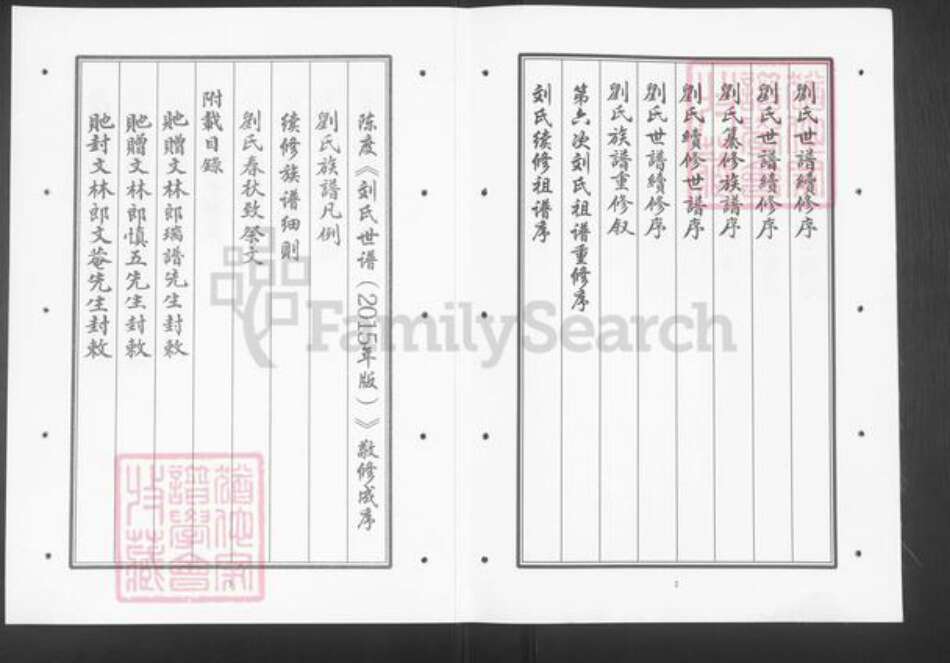 劉氏世譜續修序
劉氏世譜續修序
劉氏纂修族譜序
劉氏續修世譜序
劉氏世譜續修序
劉氏族譜重修叙
第六次刘氏祖谱重修序
刘氏续修祖谱序
2
陈度《刘氏世谱（2015年版）》敬修成序
劉氏族譜凡例
续修族谱细则
劉氏春秋致祭文
附載目錄
貤贈文林郎瑞譜先生封敕
貤贈文林郎慎五先生封敕
貤封文林郎文菴先生封敕
FamilySearch